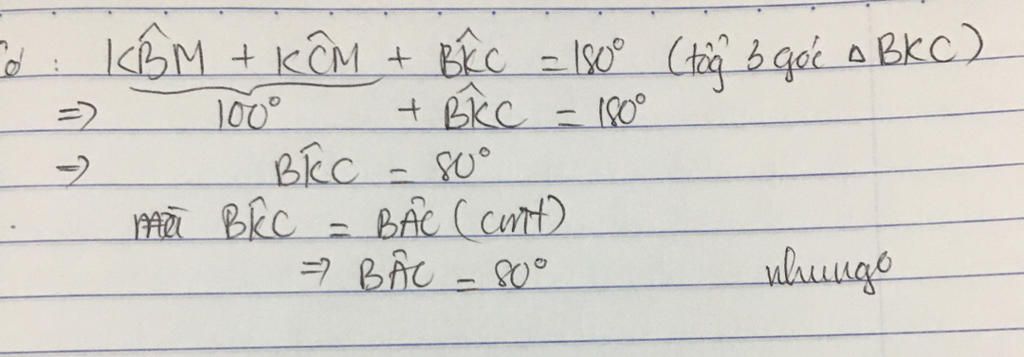 : KB̂M + KĈM + BK̂C = 180° (tổg 3 góc △ BKC)
=> 100° + BK̂C = 180°
=> BK̂C = 80°
mà BK̂C = BÂC (cmt)
=> BÂC = 80°
nhungo